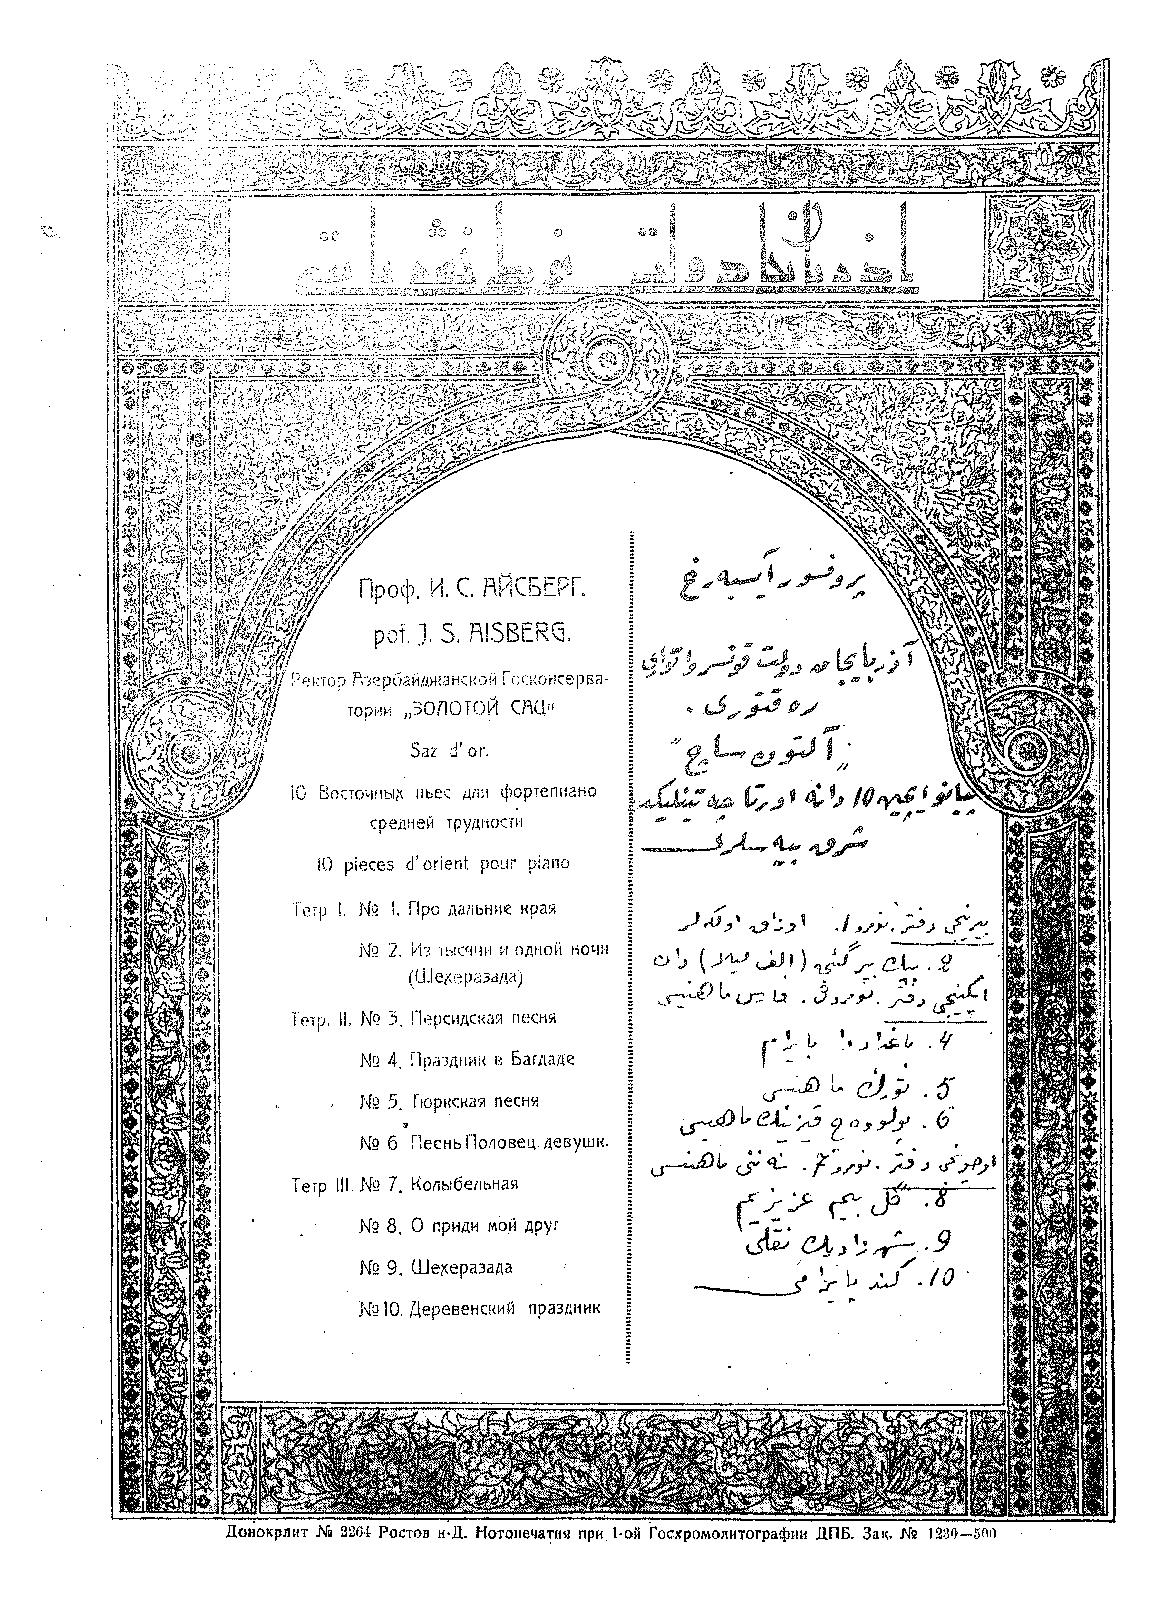 Проф. И. С. АЙСБЕРГ.
pof. J. S. AISBERG.
Ректор Азербайджанской Госконсерва-
тории „ЗОЛОТОЙ САЦ“
Saz d'or.
10 Восточных пьес для фортепиано
средней трудности
10 pieces d'orient pour piano
Тетр I. № 1. Про дальние края
№ 2. Из тысячи и одной ночи
(Шехеразада)
Тетр. II. № 3. Персидская песня
№ 4. Праздник в Багдаде
№ 5. Тюркская песня
№ 6 Песнь Половец. девушк.
Тетр III. № 7. Колыбельная
№ 8. О приди мой друг
№ 9. Шехеразада
№ 10. Деревенский праздник
پروفسور آیسبەرغ
آذربایجان دولت قونسرواتوای
رەقتوری.
„آلتون ساچ“
پیانو ایچین 10 دانە اورتا چەتینلیکدە
شرق پیەسلری
بیرنجی دفتر. نومرو 1. اوزاق اولکەلر
2. بیک بیر گئجە (الف لیلا) دان
ایکینجی دفتر. نومرو 3. فارس ماهنیسی
4. باغدادا بایرام
5. تورک ماهنیسی
6. پولووەچ قیزینک ماهنیسی
اوچونجی دفتر. نومرو 7. نەننی ماهنیسی
8. گل بنیم عزیزیم
9. شهرزادیک نقلی
10. کند بایرامی
Донокрлит № 2264 Ростов н-Д. Нотопечатня при 1-ой Госхромолитографии ДПБ. Зак. № 1230—500